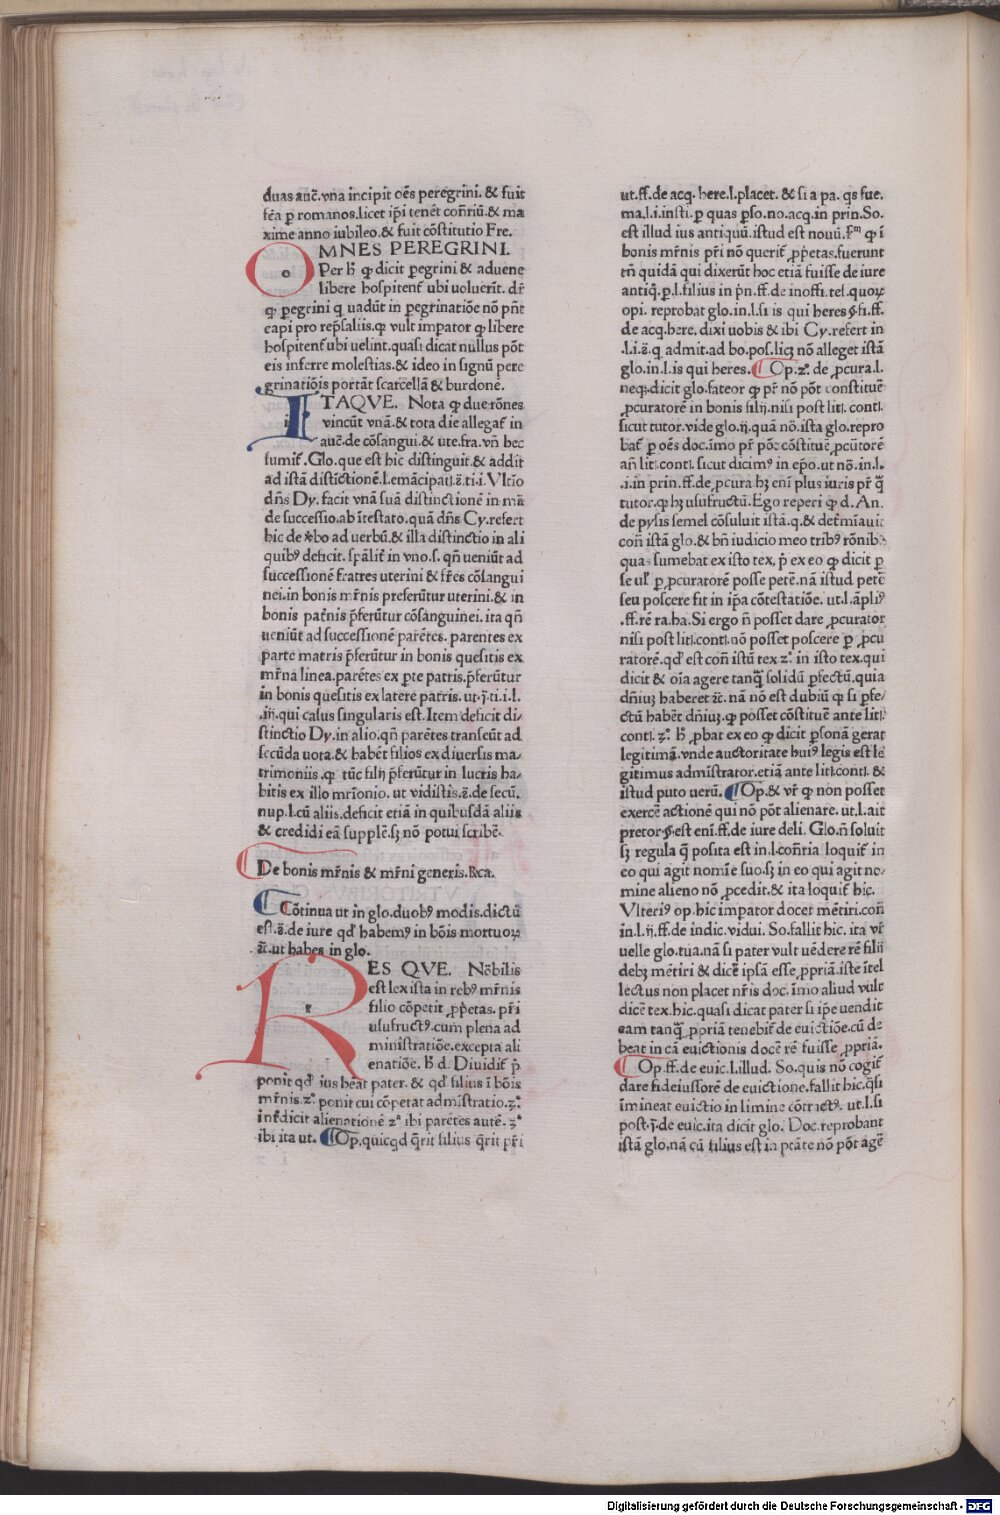 duas auc̃. vna incipit oẽs peregrini. & fuit
fẽa ꝑ romanos. licet ip̃i tenẽt cõñriũ. & ma
xime anno iubileo. & fuit cõstitutio Fre.
OMNES PEREGRINI.
Per h̃ ꝙ dicit ꝑegrini & aduene
libere hospitent̃ ubi uoluerĩt. dr̃
ꝙ ꝑegrini q uadũt in ꝑegrinatiõe nõ pñt
capi pro rep̃saliis. ꝙ vult imꝑator ꝙ libere
hospitent̃ ubi uelint. quasi dicat nullus põt
eis inferre molestias. & ideo in signũ pere
grinatiõis portãt scarcellã & burdonẽ.
ITAQVE. Nota ꝙ due rõnes
vincũt vnã. & tota die allegat̃ in
auc̃. de cõsangui. & ute. fra. vñ hec
sumit̃. Glo. que est hic distinguit. & addit
ad istã distĩctionẽ. l. emãcipati. s̃. ti. i. Vltĩo
dñs Dy. facit vnã suã distinctionẽ in mã
de successio. ab ĩtestato. quã dñs Cy. refert
hic de ṽbo ad uerbũ. & illa distinctio in ali
quibꝰ deficit. sp̃alit̃ in vno. s. qñ ueniũt ad
successionẽ fratres uterini & fr̃es cõsangui
nei. in bonis mr̃nis preferũtur uterini. & in
bonis pat̃nis p̃ferũtur cõsanguinei. ita qñ
ueniũt ad successionẽ parẽtes. parentes ex
parte matris p̃ferũtur in bonis quesitis ex
mr̃na linea. parẽtes ex ꝑte patris. p̃ferũtur
in bonis quesitis ex latere patris. ut. j̃. ti. i. l.
.iñ. qui casus singularis est. Item deficit di/
stinctio Dy. in alio. qñ parẽtes transeũt ad
secũda uota. & habẽt filios ex diuersis ma/
trimoniis. ꝙ tũc filij p̃ferũtur in lucris ha/
bitis ex illo mr̃ionio. ut vidistis. s̃. de secũ.
nup. l. cũ aliis. deficit etiã in quibusdã aliis
& credidi eã supplẽ. sꝫ nõ potui scribẽ.
De bonis mr̃nis & mr̃ni generis. Rca.
Cõtinua ut in glo. duobꝰ modis. dictũ
est. s̃. de iure qd̃ habemꝰ in bõis mortuoꝝ
ꝛc̃. ut habes in glo.
RES QVE. Nõbilis
est lex ista in rebꝰ mr̃nis
filio cõpetit ꝓp̃etas. pr̃i
usufructꝰ. cum plena ad
ministratiõe. excepta ali
enatiõe. h̃ d. Diuidit̃ p̃
ponit qd̃ ius heãt pater. & qd̃ filius ĩ bõis
mr̃nis. 2°. ponit cui cõpetat adm̃istratio. 3°.
int̃dicit alienationẽ 2ª ibi parẽtes autẽ. 3ª
ibi ita ut. Op. quicqd q̃rit filius q̃rit pr̃i
ut. ff. de acq. here. l. placet. & si a pa. qs fue.
ma. l. i. insti. ꝑ quas ꝑso. no. acq. in prin. So.
est illud ius antiquũ. istud est nouũ. s̃m ꝙ ĩ
bonis mr̃nis pr̃i nõ querit̃ ꝓp̃etas. fuerunt
tñ quidã qui dixerũt hoc etiã fuisse de iure
antiq̃. ꝑ. l. filius in p̃n. ff. de inoffi. tes. quoꝝ
opi. reprobat glo. in. l. si is qui heres §. fi. ff.
de acq. here. dixi uobis & ibi Cy. refert in
.l. i. s̃. q admit. ad bo. pos. licꝫ nõ alleget istã
glo. in. l. is qui heres. Op. 2°. de ꝓcura. l.
neqꝫ. dicit glo. fateor ꝙ pr̃ nõ põt constituẽ
ꝓcuratorẽ in bonis filij. nisi post liti. conti.
sicut tutor. vide glo. ij. quã nõ. ista glo. repro
bat̃ ꝑ oẽs doc. imo pr̃ põt cõstituẽ ꝓcũtorẽ
añ liti. conti. sicut dicimꝰ in ep̃o. ut nõ. in. l.
.i. in prin. ff. de ꝓcura. hꝫ enĩ plus iuris pr̃ q̃
tutor. ꝙ hꝫ usufructũ. Ego reperi ꝙ d. An.
de pysis semel cõsuluit istã. q. & det̃mĩauit
coñ istã glo. & bñ iudicio meo tribꝰ rõnibꝰ
quas sumebat ex isto tex. p̃ ex eo ꝙ dicit ꝑ
se ul̃ ꝑ ꝓcuratorẽ posse petẽ. nã istud petẽ
seu poscere fit in ip̃a cõtestatiõe. ut. l. ãpliꝰ
.ff. rẽ ra. ha. Si ergo ñ posset dare ꝓcurator
nisi post liti. conti. nõ posset poscere ꝑ ꝓcu
ratorẽ. qd̃ est coñ istũ tex 2°. in isto tex. qui
dicit & oĩa agere tanq̃ solidũ ꝑfectũ. quia
dñiuꝫ haberet ꝛc̃. nã nõ est dubiũ ꝙ si ꝑfe/
ctũ habẽt dñiuꝫ. ꝙ posset cõstituẽ ante liti.
conti. 3°. h̃ ꝓbat ex eo ꝙ dicit ꝑsonã gerat
legitimã. vnde auctoritate huiꝰ legis est le
gitimus adm̃istrator. etiã ante liti. conti. &
istud puto uerũ. Op. & vr̃ ꝙ non posset
exercẽ actionẽ qui nõ põt alienare. ut. l. ait
pretor. §. est enĩ. ff. de iure deli. Glo. ñ soluit
sꝫ regula q̃ posita est in. l. coñria loquit̃ in
eo qui agit nomĩe suo. sꝫ in eo qui agit no/
mine alieno nõ ꝓcedit. & ita loquit̃ hic.
Vlteriꝰ op. hic imꝑator docet mẽtiri. coñ
in. l. ij. ff. de indic. vidui. So. fallit hic. ita vr̃
uelle glo. tua. nã si pater vult uẽdere rẽ filii
debꝫ mẽtiri & dicẽ ipsã esse ꝓpriã. iste ĩtel
lectus non placet nr̃is doc. ĩmo aliud vult
dicẽ tex. hic. quasi dicat pater si ip̃e uendit
eam tanq̃ ꝓpriã tenebit̃ de euictiõe. cũ de
beat in cã euictionis docẽ rẽ fuisse ꝓpriã.
Op. ff. de euic. l. illud. So. quis nõ cogit̃
dare fideiussorẽ de euictione. fallit hic. q̃si
ĩmineat euictio in limine cõtractꝰ. ut. l. si
post. j̃. de euic. ita dicit glo. Doc. reprobant
istã glo. nã cũ filius est ĩa ptãte nõ põt agẽ
Digitalisierung gefördert durch die Deutsche Forschungsgemeinschaft - DFG